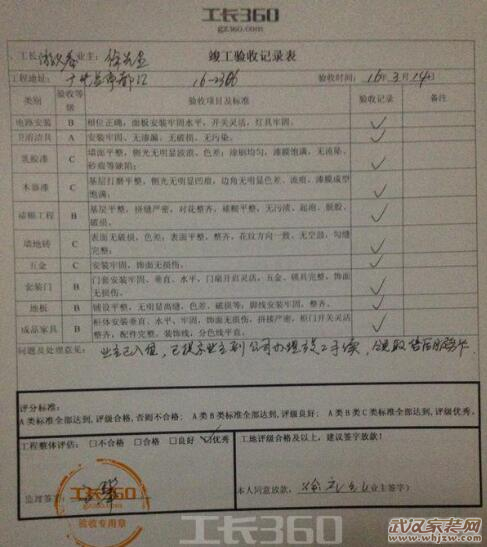 工长360
gz360.com
竣工验收记录表
工长 业主:
工程地址: 16-2306 验收时间: 16.3月14日
类别 验收等级 验收项目及标准 验收记录 备注
电路安装 B 相位正确,面板安装牢固水平,开关灵活,灯具牢固。 ✓
卫浴洁具 A 安装牢固、无渗漏,无破损、无污染。 ✓
乳胶漆 C 墙面平整,侧光无明显波浪、色差;涂刷均匀,漆膜饱满,无流坠、 ✓
砂痕等缺陷;
木器漆 C 基层打磨平整,侧光无明显凹痕,边角无明显色差、流痕,漆膜成型 ✓
饱满。
裱糊工程 B 基层平整,拼缝严密,对花整齐,裱糊平整,无污渍、起泡、脱胶、 ✓
破损。
墙地砖 C 表面无破损,色差;表面平整,整齐,花纹方向一致,无空鼓,勾缝 ✓
完整;
五金 C 安装牢固,饰面无损伤。 ✓
套装门 B 门套安装牢固、垂直、水平,门扇开启灵活,五金、锁具完整,饰面 ✓
无损伤。
地板 B 铺设平整,无明显高缝、色差、破损等;脚线安装牢固,整齐。 ✓
成品家具 B 柜体安装垂直、水平,牢固,饰面无损伤,拼接严密,柜门开关灵活 ✓
整齐,配件完整,装饰线,分色线平直。
问题及处理意见: 业主已入住,已提示业主到公司办理竣工手续,领取售后服务卡
评分标准:
A类标准全部达到,评级合格,否则不合格; A类B类标准全部达到,评级良好; A类B类C类标准全部达到,评级优秀。
工程整体评估: □不合格 □合格 □良好 ☑优秀 工地评级合格及以上,建议签字放款!
监理签字: 本人同意放款, (业主签字)
工长360
验收专用章
工长360
武汉家老网
www.whjzw.com